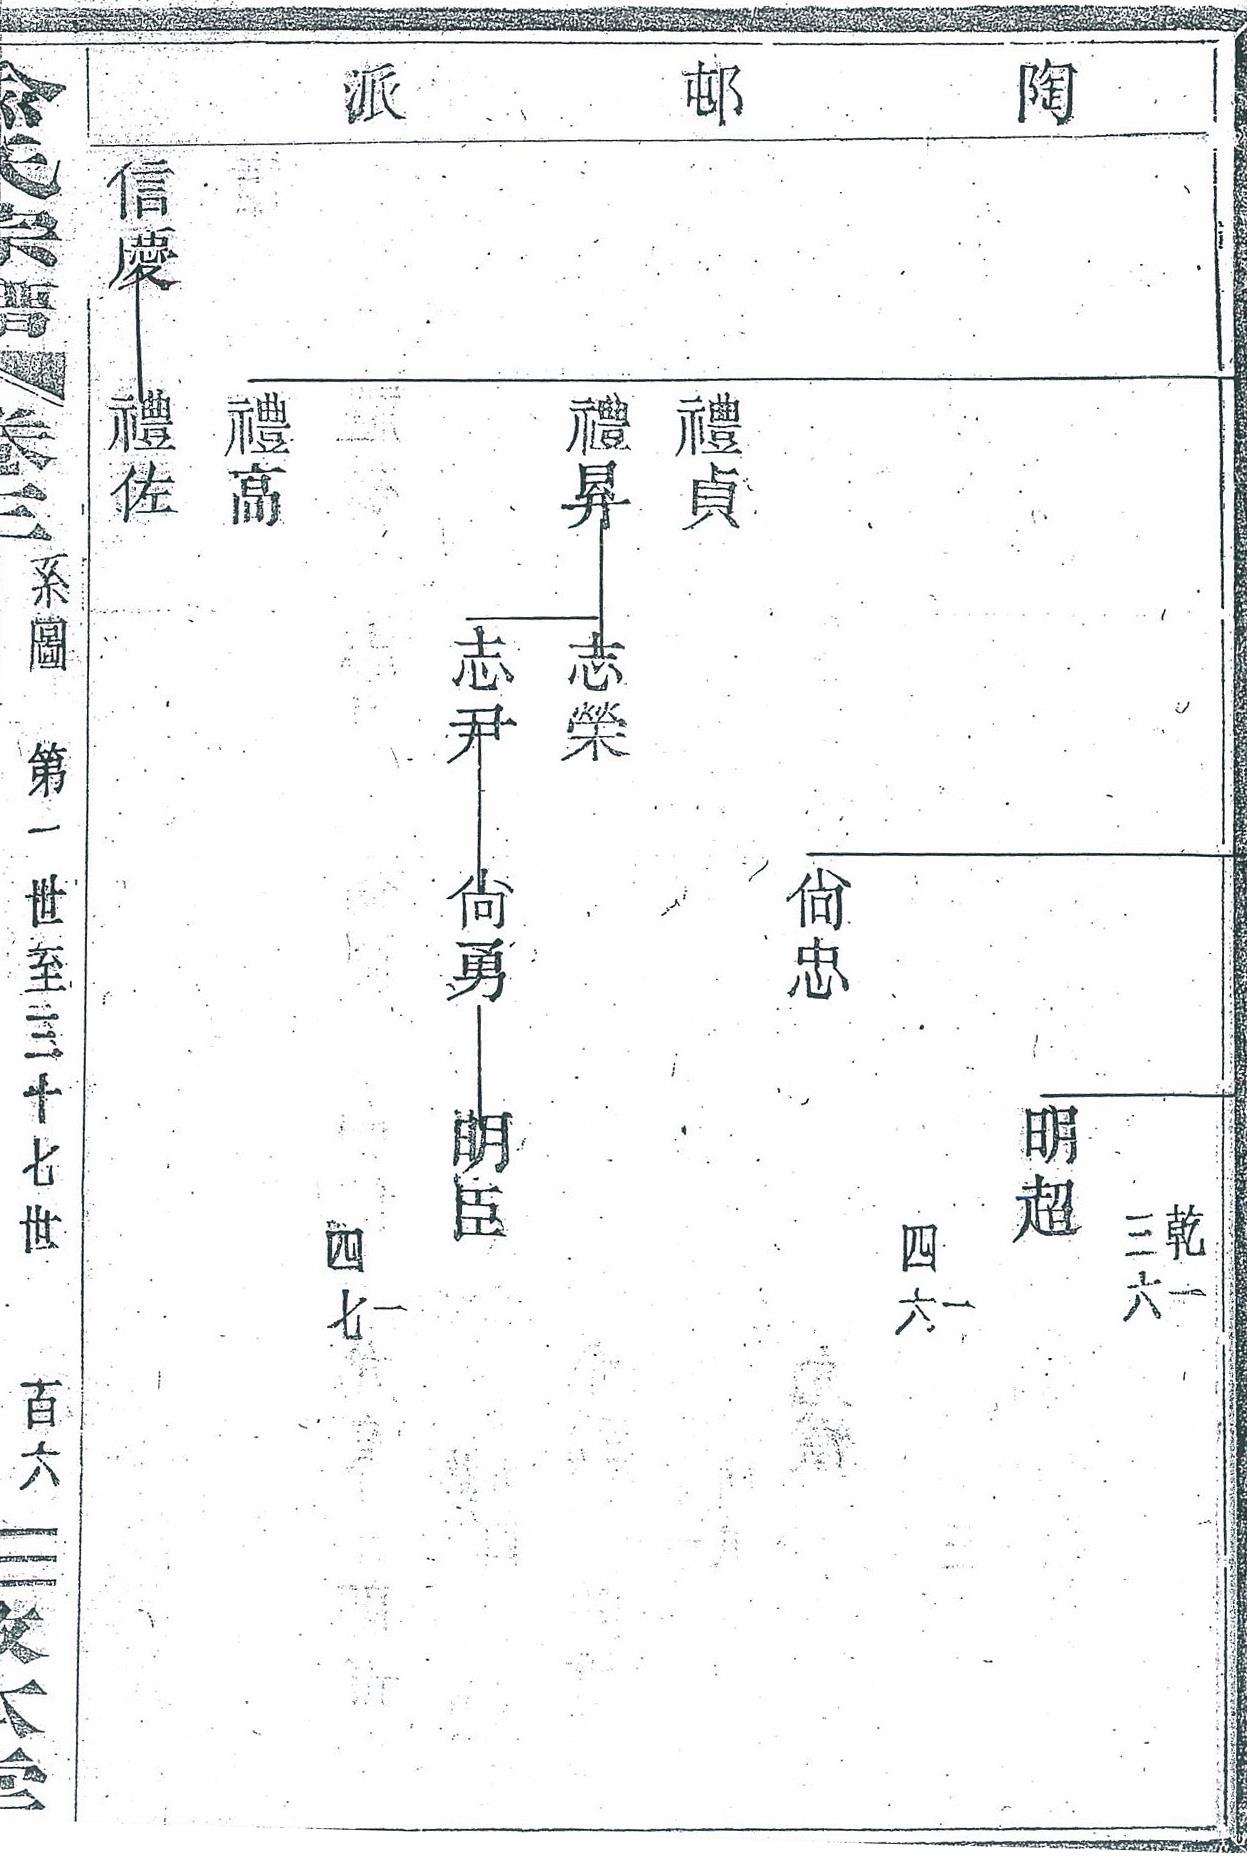 陶邨派
乾一
三六
明超
一
四六
尙忠
禮貞
禮昇
志榮
志尹
尙勇
明臣
一
四七
禮高
信慶
禮佐
宗譜
卷三
系圖 第一世至三十七世 百六
敦本堂